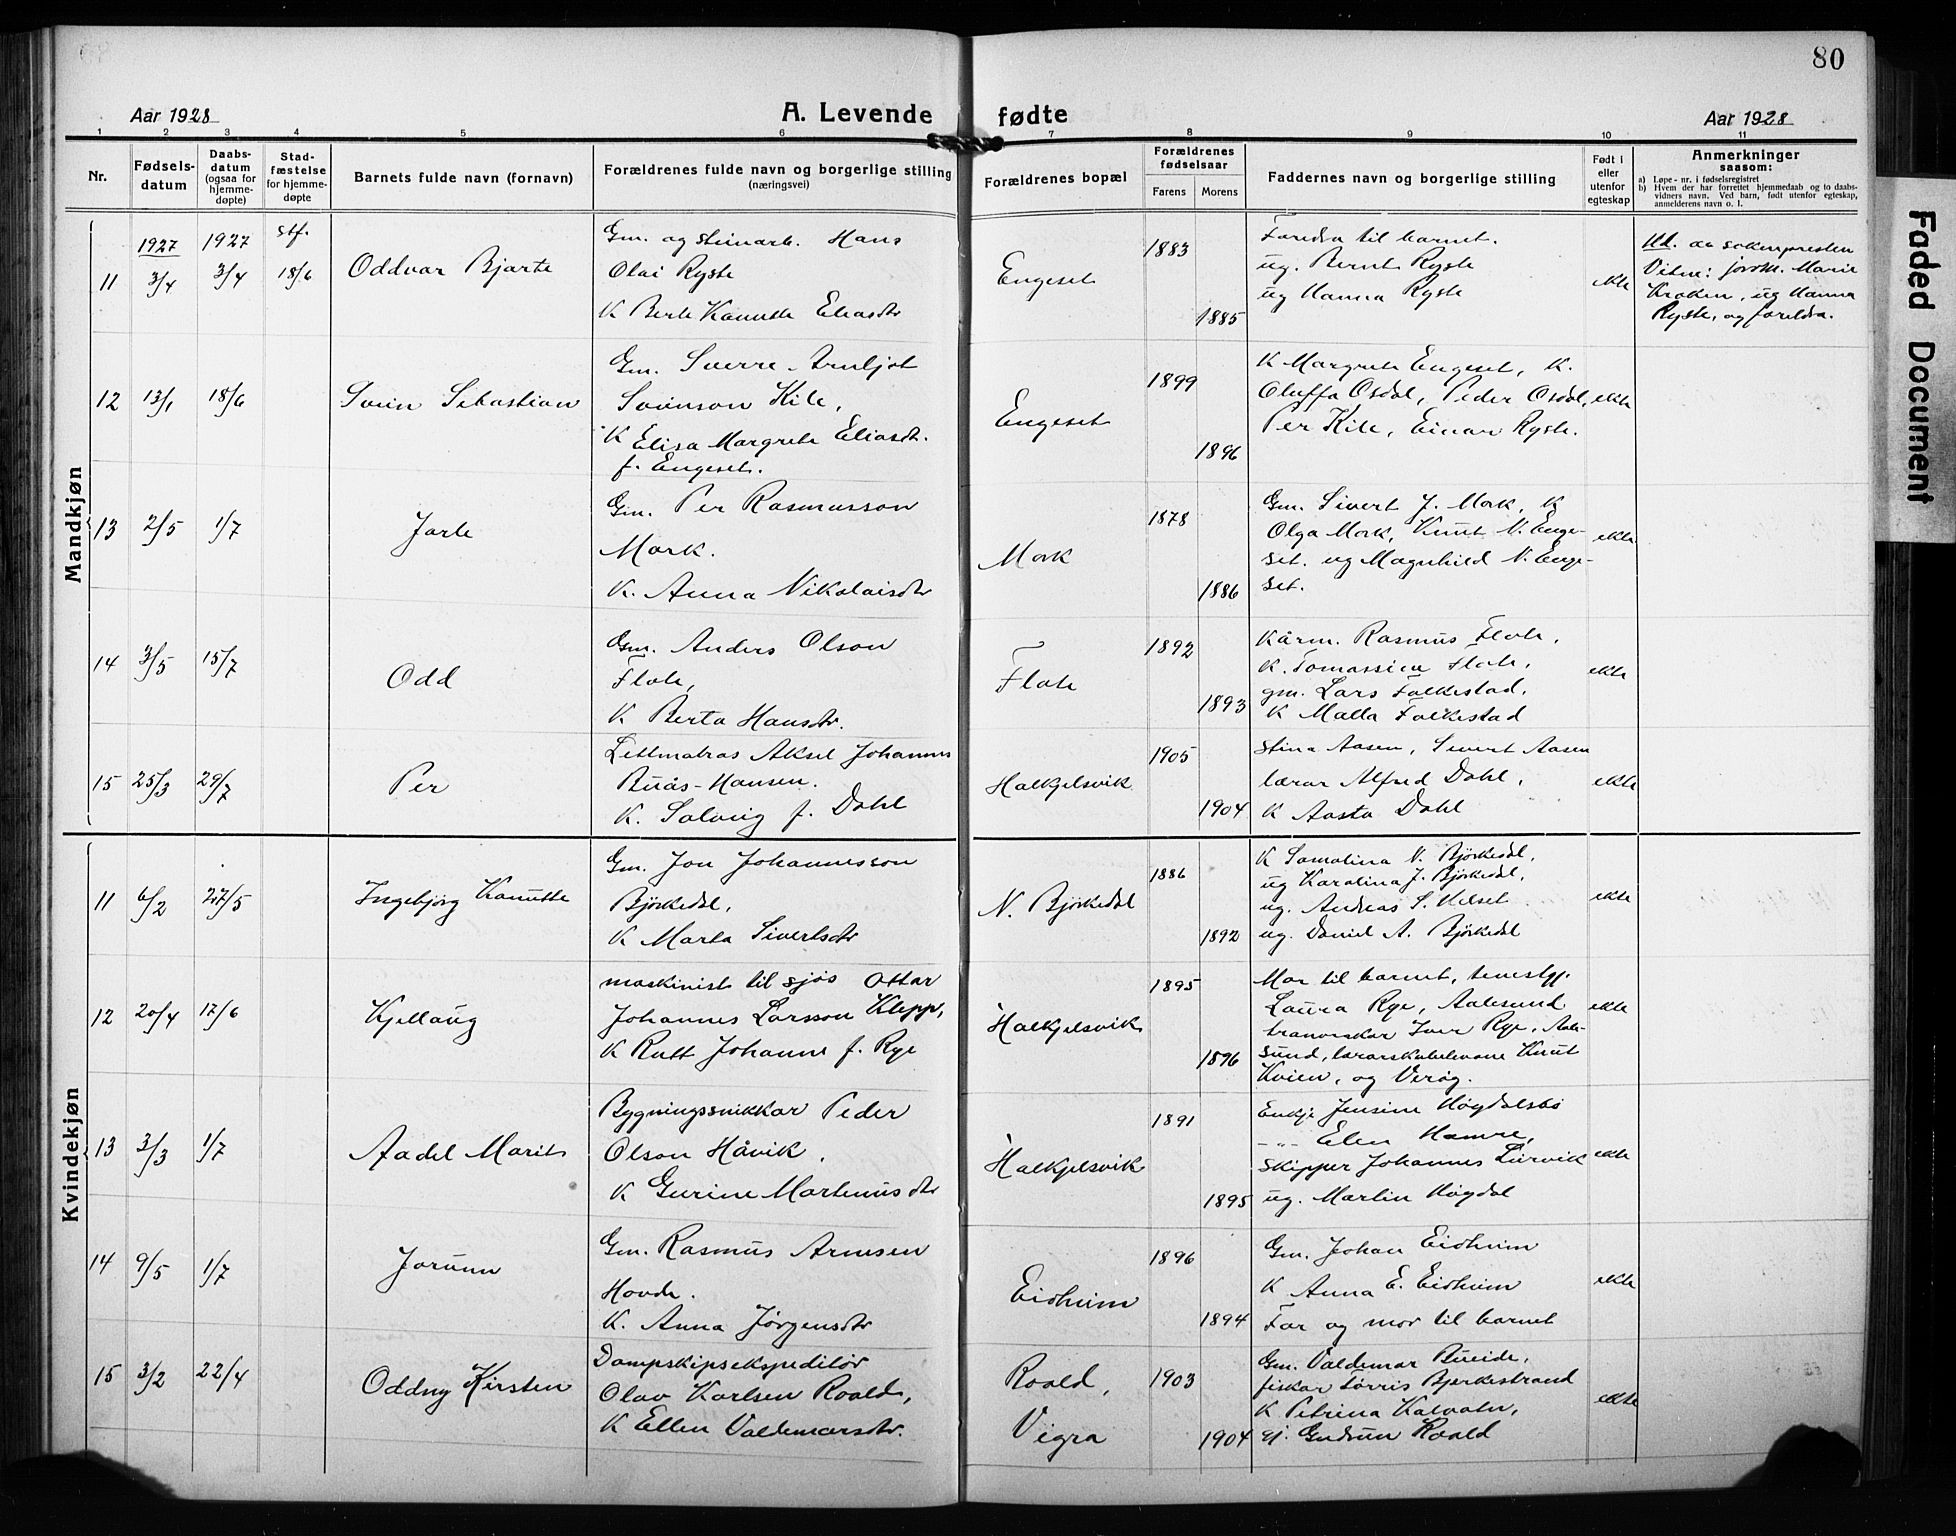 80
Aar 1928
A. Levende
fødte
Aar 1928
1 2 3 4 5 6 7 8 9 10 11
Nr.
Fødsels-
datum
Daabs-
datum
(ogsaa for
hjemme-
døpte)
Stad-
fæstelse
for hjemme-
døpte
Barnets fulde navn (fornavn)
Forældrenes fulde navn og borgerlige stilling
(næringsvei)
Forældrenes bopæl
Forældrenes
fødselsaar
Farens
Morens
Faddernes navn og borgerlige stilling
Født i
eller
utenfor
egteskap
Anmerkninger
saasom:
a) Løpe-nr. i fødselsregistret
b) Hvem der har forrettet hjemmedaab og to daabs-
vidners navn. Ved barn, født utenfor egteskap,
anmelderens navn o. l.
Faded Document
Mandkjøn
11
1927
3/4
1927
3/4
stf.
18/6
Oddvar Bjarte
Gm. og steinarb. Hans
Olai Ryste
K Berte Kanutte Eliasdtr
Engeset
1883
1885
Foreldra til barnet.
ug. Bernt Ryste
ug Hanna Ryste
ekte
Ud. av sokenpresten
Vitne: jordm. Marie
Kroken, ug Hanna
Ryste, og foreldra.
12
13/1
18/6
Svein Sebastian
Gm. Sverre Arnljot
Sveinson Kile,
K Elisa Margrete Eliasdt.
f. Engeset.
Engeset
1899
1896
K Margrete Engeset, K.
Oluffa Osdal, Peder Osdal,
Per Kile, Einar Ryste.
ekte
13
2/5
1/7
Jarle
Gm. Per Rasmusson
Mork.
K. Anna Nikolaisdtr
Mork
1878
1886
Gm. Sivert J. Mork, K
Olga Mork, Knut N. Enge-
set. ug Magnhild N. Enge-
set.
ekte
14
3/5
15/7
Odd
Gm. Anders Olson
Flote,
K Berta Hansdtr.
Flote
1892
1893
Kårm. Rasmus Flote,
K. Tomassine Flote,
gm. Lars Folkestad,
K Malla Folkestad
ekte
15
25/3
29/7
Per
Lettmatros Aksel Johannes
Buås-Hansen.
K. Solveig f. Dahl
Halkjelsvik
1905
1904
Stina Aasen, Sivert Aasen
lærar Alfred Dahl,
K Aasta Dahl
ekte
Kvindekjøn
11
6/2
27/5
Ingebjørg Kanutte
Gm. Jon Johannesson
Bjørkedal,
K Marta Sivertsdtr
N. Bjørkedal
1886
1892
K Samolina N. Bjørkedal,
ug Karolina J. Bjørkedal,
ug. Andreas S. Helset
ug. Daniel A. Bjørkedal
ekte
12
20/4
17/6
Kjellaug
maskinist til sjøs Ottar
Johannes Larsson Klepp,
K Rutt Johanne f. Rye
Halkjelsvik
1895
1896
Mor til barnet, tenestgj.
Laura Rye, Aalesund
tranvrakar Iver Rye, Aale-
sund, lærarskuleelevane Knut
Kvien, og Verøg.
ekte
13
3/3
1/7
Aadel Marit
Bygningssnikkar Peder
Olson Håvik,
K Gurine Martinusdtr
Halkjelsvik
1891
1895
Enkje Jensine Høgdalsbø
-"- Elen Hamre,
Skipper Johannes Lurvik
ug. Martin Høgdal
ekte
14
9/5
1/7
Jorunn
Gm. Rasmus Arnesen
Hovde.
K. Anna Jørgensdtr
Eidheim
1896
1894
Gm. Johan Eidheim
K Anna E. Eidheim
Far og mor til barnet
ekte
15
3/2
22/4
Oddny Kirsten
Dampskipsekspeditør
Olav Karlsen Roald,
K Ellen Valdemarsdtr.
Roald,
Vigra
1903
1904
Gm. Valdemar Bueide,
fiskar Sørris Bjerkestrand
K Petrina Kalvatn,
gj. Gudrun Roald
ekte